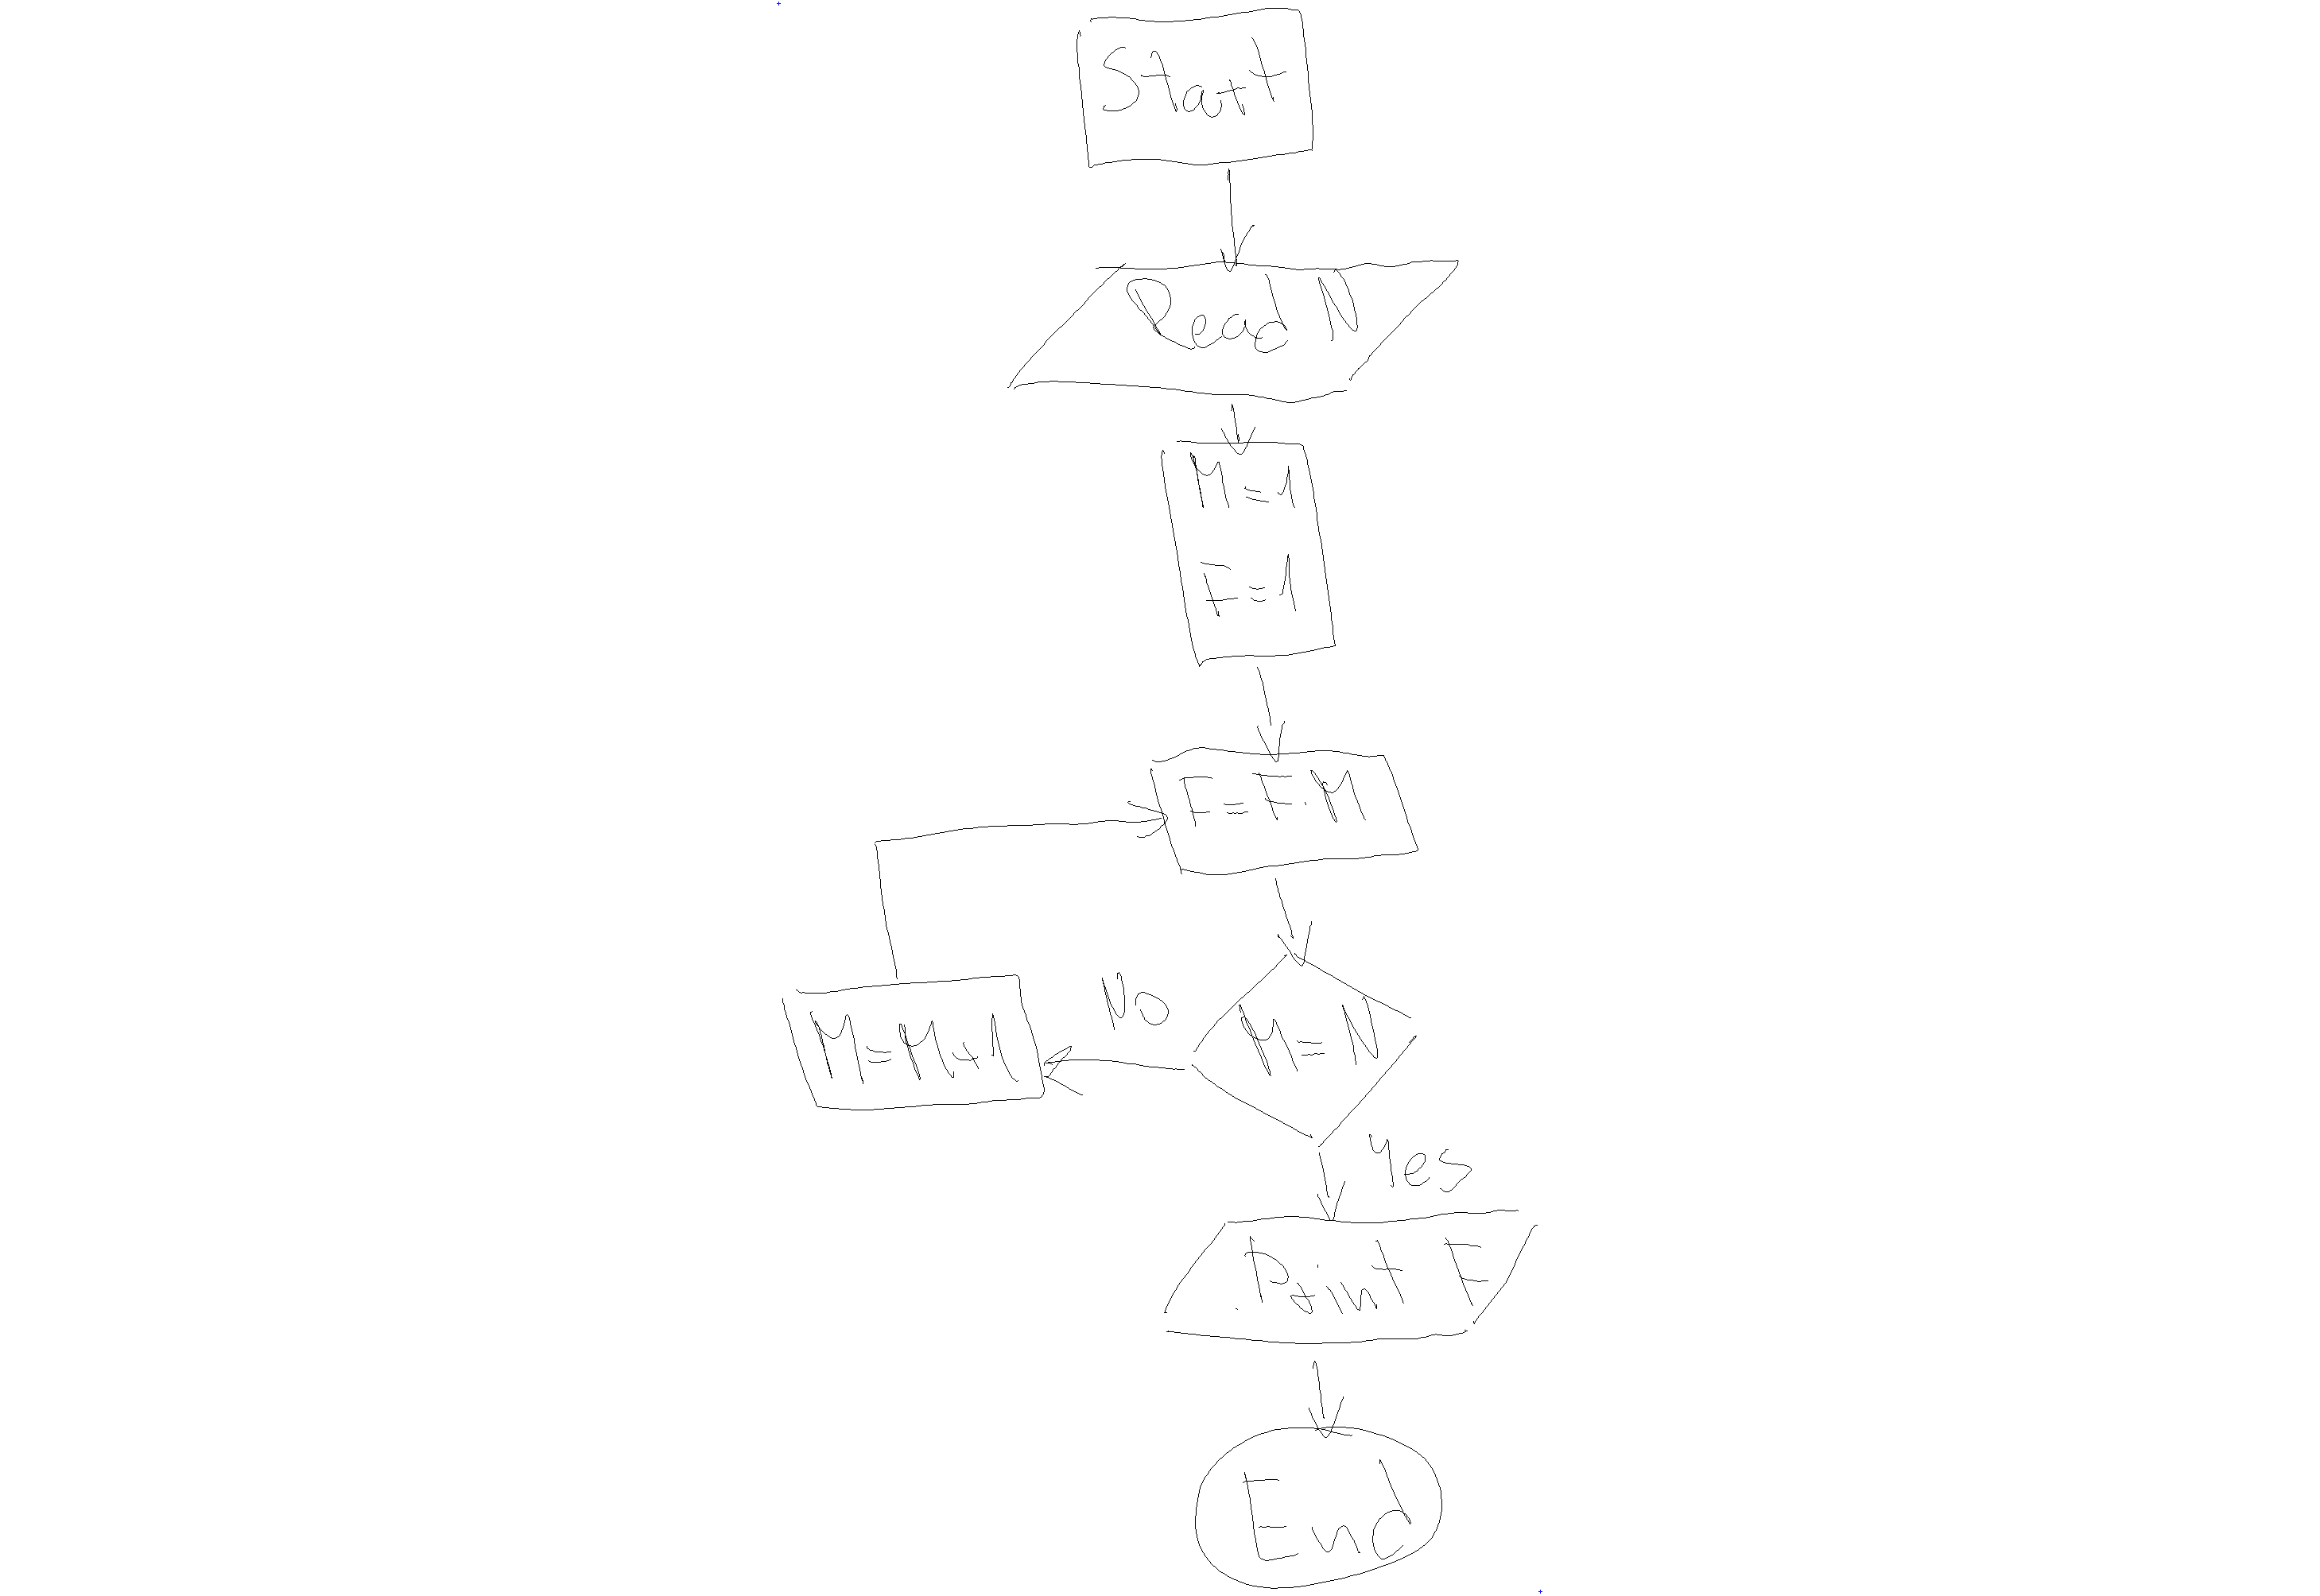 Start
Read N
M=1
F=1
F=F.M
No
M=M+1
M=N
Yes
Print F
End